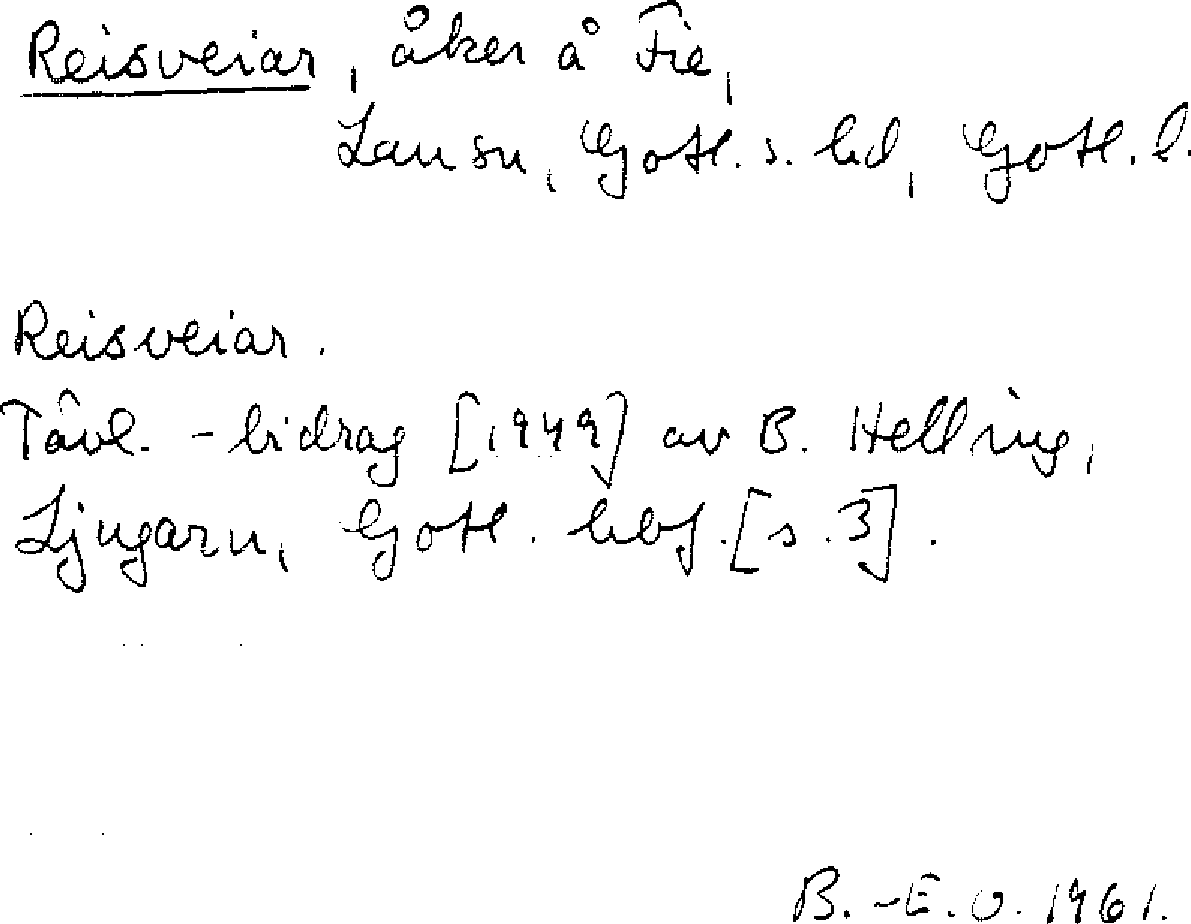 Reisveiar, åker å Fie,
Lau sn, Gotl. s. hd, Gotl. l.
Reisveiar.
Tävl. - bidrag [1949] av B. Helling,
Ljugarn, Gotl. hbf. [s. 3].
B.-E. O. 1961.